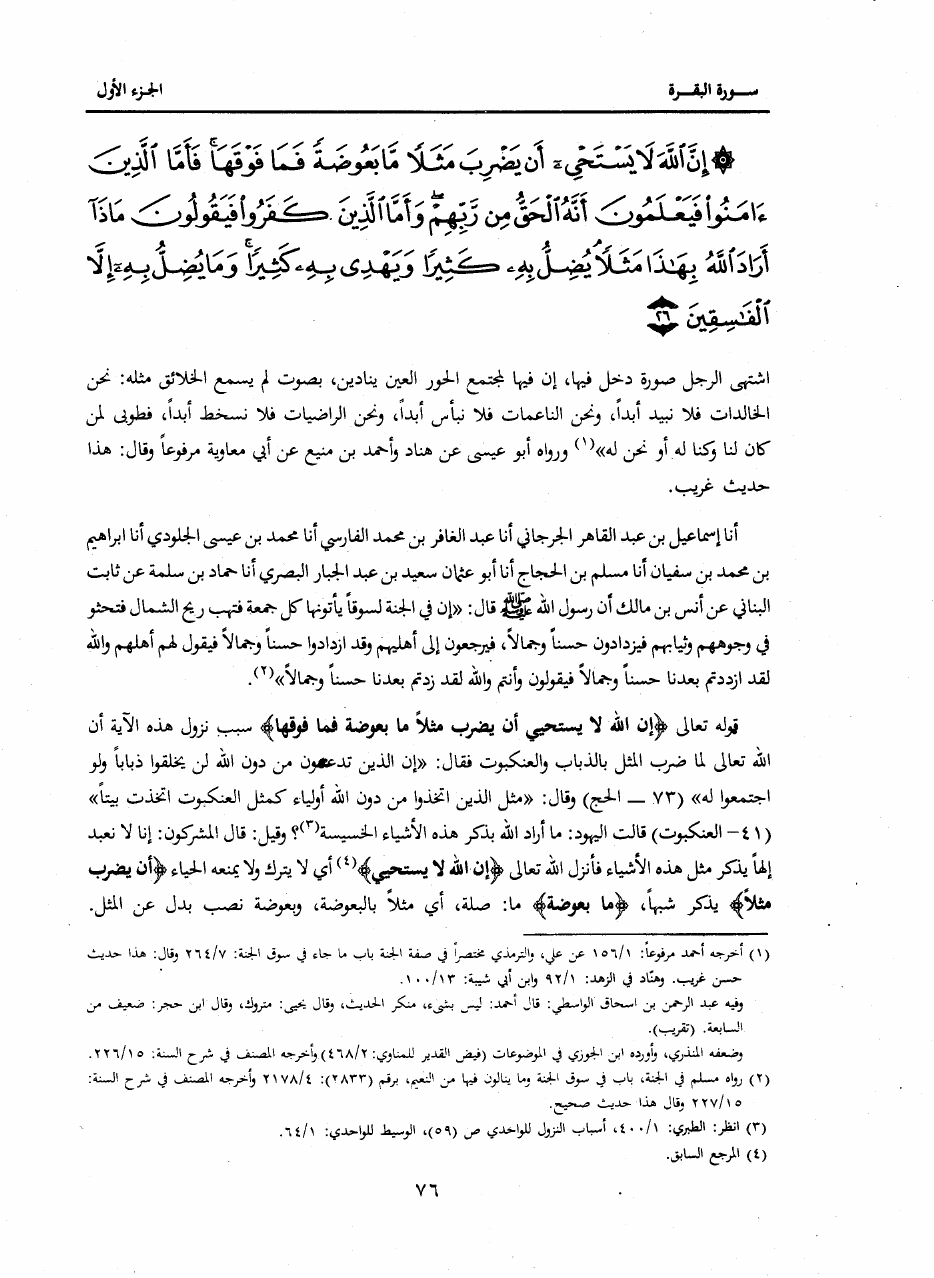 سورة البقرة
الجزء الأول
۞ إِنَّ ٱللَّهَ لَا يَسۡتَحۡيِۦٓ أَن يَضۡرِبَ مَثَلٗا مَّا بَعُوضَةٗ فَمَا فَوۡقَهَاۚ فَأَمَّا ٱلَّذِينَ
ءَامَنُواْ فَيَعۡلَمُونَ أَنَّهُ ٱلۡحَقُّ مِن رَّبِّهِمۡۖ وَأَمَّا ٱلَّذِينَ كَفَرُواْ فَيَقُولُونَ مَاذَآ
أَرَادَ ٱللَّهُ بِهَٰذَا مَثَلٗاۘ يُضِلُّ بِهِۦ كَثِيرٗا وَيَهۡدِي بِهِۦ كَثِيرٗاۚ وَمَا يُضِلُّ بِهِۦٓ إِلَّا
ٱلۡفَٰسِقِينَ ٢٦
اشتهى الرجل صورة دخل فيها، إن فيها لمجتمع الحور العين ينادين، بصوت لم يسمع الخلائق مثله: نحن
الخالدات فلا نبيد أبداً، ونحن الناعمات فلا نبأس أبداً، ونحن الراضيات فلا نسخط أبداً، فطوبى لمن
كان لنا وكنا له أو نحن له»(١) ورواه أبو عيسى عن هناد وأحمد بن منيع عن أبي معاوية مرفوعاً وقال: هذا
حديث غريب.
أنا إسماعيل بن عبد القاهر الجرجاني أنا عبد الغافر بن محمد الفارسي أنا محمد بن عيسى الجلودي أنا ابراهيم
بن محمد بن سفيان أنا مسلم بن الحجاج أنا أبو عثمان سعيد بن عبد الجبار البصري أنا حماد بن سلمة عن ثابت
البناني عن أنس بن مالك أن رسول الله ﷺ قال: «إن في الجنة لسوقاً يأتونها كل جمعة فتهب ريح الشمال فتحثو
في وجوههم وثيابهم فيزدادون حسناً وجمالاً، فيرجعون إلى أهليهم وقد ازدادوا حسناً وجمالاً فيقول لهم أهلهم والله
لقد ازددتم بعدنا حسناً وجمالاً فيقولون وأنتم والله لقد زدتم بعدنا حسناً وجمالاً»(٢).
قوله تعالى ﴿إن الله لا يستحيي أن يضرب مثلاً ما بعوضة فما فوقها﴾ سبب نزول هذه الآية أن
الله تعالى لما ضرب المثل بالذباب والعنكبوت فقال: «إن الذين تدعون من دون الله لن يخلقوا ذباباً ولو
اجتمعوا له» (٧٣ ــ الحج) وقال: «مثل الذين اتخذوا من دون الله أولياء كمثل العنكبوت اتخذت بيتاً»
(٤١- العنكبوت) قالت اليهود: ما أراد الله بذكر هذه الأشياء الخسيسة(٣)؟ وقيل: قال المشركون: إنا لا نعبد
إلهاً يذكر مثل هذه الأشياء فأنزل الله تعالى ﴿إن الله لا يستحيي﴾(٤) أي لا يترك ولا يمنعه الحياء ﴿أن يضرب
مثلاً﴾ يذكر شبهاً، ﴿ما بعوضة﴾ ما: صلة، أي مثلاً بالبعوضة، وبعوضة نصب بدل عن المثل.
(١) أخرجه أحمد مرفوعاً: ١٥٦/١ عن علي، والترمذي مختصراً في صفة الجنة باب ما جاء في سوق الجنة: ٢٦٤/٧ وقال: هذا حديث
حسن غريب. وهنّاد في الزهد: ٩٢/١ وابن أبي شيبة: ١٠٠/١٣.
وفيه عبد الرحمن بن اسحاق الواسطي: قال أحمد: ليس بشيء، منكر الحديث، وقال يحيى: متروك، وقال ابن حجر: ضعيف من
السابعة. (تقريب).
وضعفه المنذري، وأورده ابن الجوزي في الموضوعات (فيض القدير للمناوي: ٤٦٨/٢) وأخرجه المصنف في شرح السنة: ٢٢٦/١٥.
(٢) رواه مسلم في الجنة، باب في سوق الجنة وما ينالون فيها من النعيم، برقم (٢٨٣٣): ٢١٧٨/٤ وأخرجه المصنف في شرح السنة:
٢٢٧/١٥ وقال هذا حديث صحيح.
(٣) انظر: الطبري: ٤٠٠/١، أسباب النزول للواحدي ص (٥٩)، الوسيط للواحدي: ٦٤/١.
(٤) المرجع السابق.
٧٦